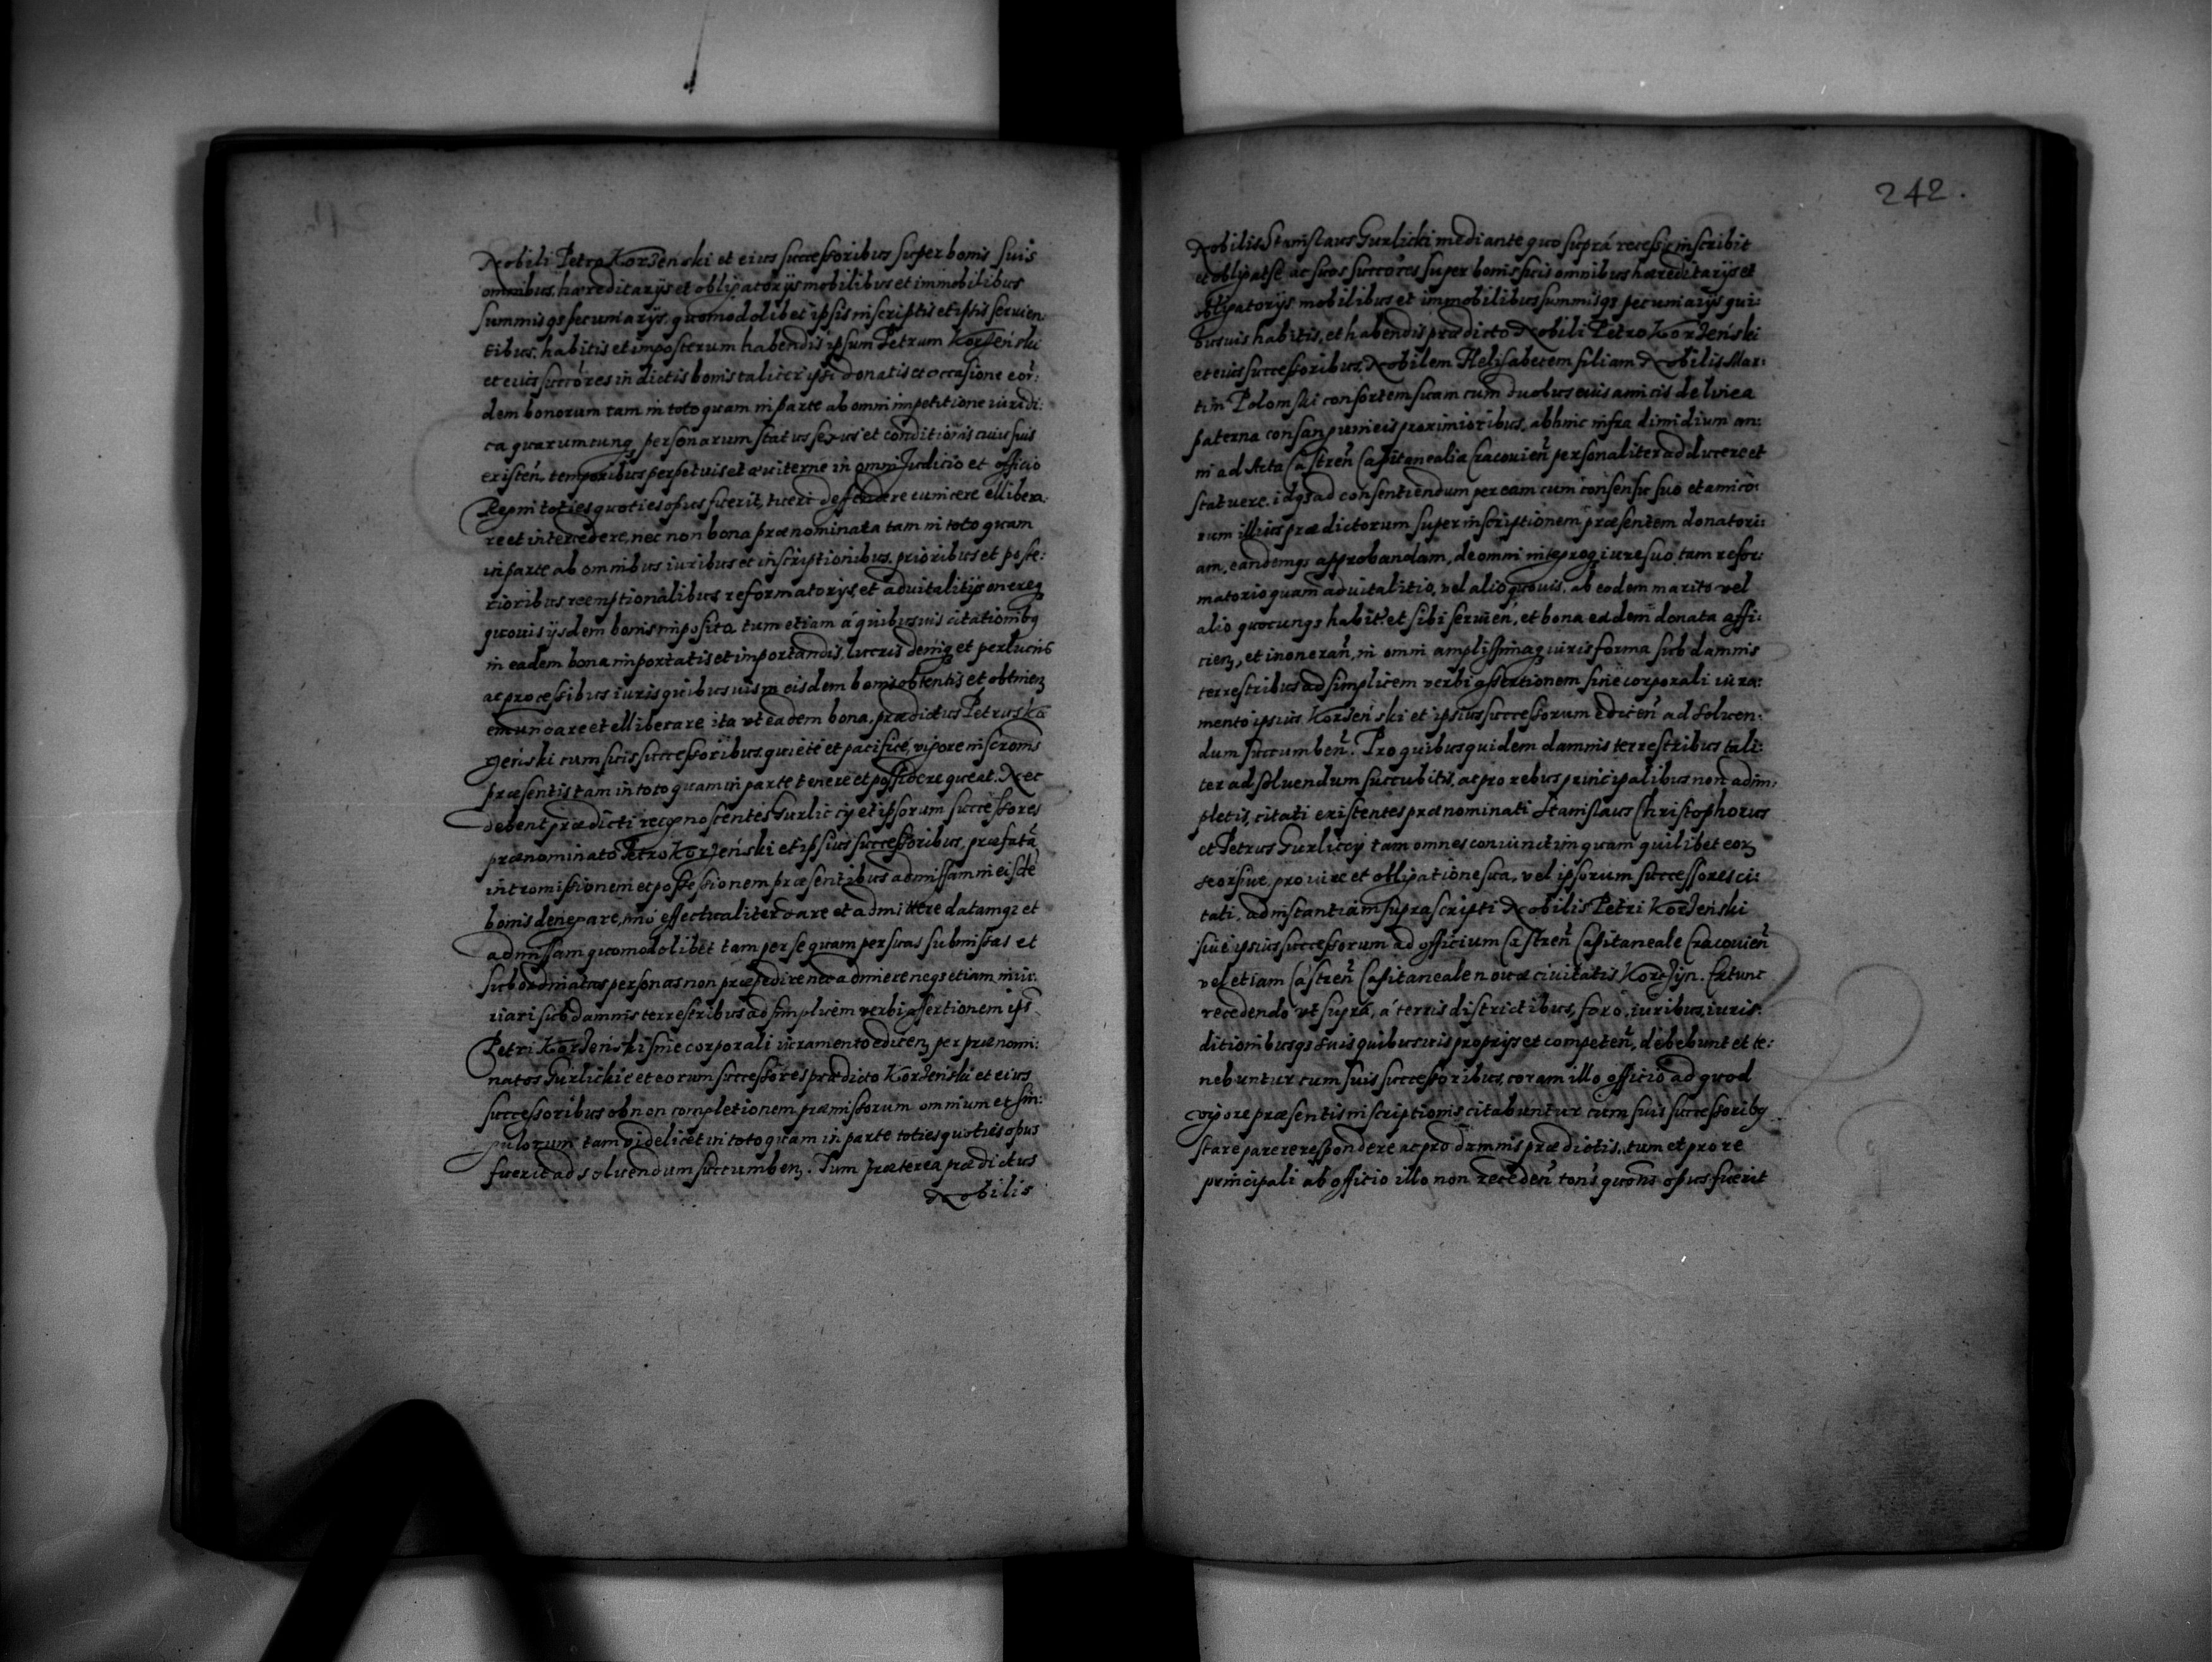 Nobili Petro Korzenski et eius successoribus super bonis suis
omnibus, hæreditarÿs et obligatorÿs mobilibus et immobilibus
summisqȝ pecuniarÿs, quomodolibet ipsis inscriptis et ipsis seruien
tibus, habitis et imposterum habendis ipsum Petrum Korzenski
et eius succōres in dictis bonis taliter ipsi donatis et occasione eor̃:
dem bonorum tam in toto quam in parte ab omni impetitione iuridi:
ca quarumcunqȝ personarum status sexus et conditionis cuiusuis
existeñ, temporibus perpetuis et æuiterne in omni Judicio et officio
Regni toties quoties opus fuerit, tueri deffendere euincere ellibera:
re et intercedere, nec non bona prænominata tam in toto quam
in parte ab omnibus iuribus et inscriptionibus, prioribus et poste:
rioribus reemptionalibus reformatorÿs et aduitalitÿs onereqȝ
quouis ÿsdem bonis imposito tum etiam á quibusuis citationibȝ
in eadem bona importatis et importandis, lucris deniqȝ et perlucris
ac processibus iuris quibusuis in eisdem bonis obtentis et obtineñ
emundare et elliberare ita vt eadem bona, prædictus Petrus Ko
rzenski cum suis successoribus quiete et pacifice, vigore inscr̃onis
præsentis tam in toto quam in parte tenere et possidere queat. Nec
debent prædicti recognoscentes Gurliccÿ et ipsorum successores
prænominato Petro Korzenski et ipsius successoribus, præfatã
intromissionem et possessionem præsentibus admissam in eisdē
bonis denegare, imo effectualiter dare et admittere datamqȝ et
admissam quomodolibet tam per se quam per suas submissas et
subordinatas personas non præpedire nec adimere neqȝ etiam iniu:
riari sub damnis terrestribus ad simplicem verbi assertionem ips̃
Petri Korzenski sine corporali iuramento ediceñ per prænomi:
natos Gurlickie et eorum successores prædicto Korzenski et eius
successoribus ob non completionem præmissorum omnium et sin:
gulorum tam videlicet in toto quam in parte toties quoties opus
fuerit ad soluendum succumbeñ. Tum præterea prædictus
Nobilis
242.
Nobilis Stanislaus Gurlicki mediante quo suprá recessu inscribit
et obligat se ac suos succōres super bonis suis omnibus hæreditarÿs et
obligatorÿs mobilibus et immobilibus summisqȝ pecuniarÿs qui:
busuis habitis, et habendis prædicto Nobili Petro Korzenski
et eius successoribus, Nobilem Helisabetem filiam Nobilis Mar:
tini Polomski consortem suam cum duobus eius amicis de linea
paterna consanguineis proximioribus, abhinc infra dimidium an:
ni ad Acta Castreñ Capitanealia Cracouieñ personaliter adducere et
statuere, idqȝ ad consentiendum per eam cum consensu suo et amico:
rum illius prædictorum super inscriptionem præsentem donatori:
am, eandemqȝ approbandam, de omni integroqȝ iure suo, tam refor:
matorio quam aduitalitio, vel alio quouis, ab eodem marito vel
alio quocunqȝ habito et sibi seruieñ, et bona eadem donata affi:
cieñ, et inonerañ, in omni amplissimaqȝ iuris forma sub damnis
terrestribus ad simplicem verbi assertionem sine corporali iura:
mento ipsius Korzenski et ipsius successorum ediceñ ad soluen:
dum succumbeñ. Pro quibus quidem damnis terrestribus tali:
ter ad soluendum succubitis, ac pro rebus principalibus non adim:
pletis, citati existentes prænominati Stanislaus Christophorus
et Petrus Gurliccÿ tam omnes coniunctim quam quilibet eorȝ
seorsiue, pro iure et obligatione sua, vel ipsorum successores ci:
tati, ad instantiam suprascripti Nobilis Petri Korzenski
siue ipsius successorum ad officium Castreñ Capitaneale Cracouieñ
vel etiam Castreñ Capitaneale nouæ ciuitatis Korczÿn. Extunc
recedendo vt suprá, á terris districtibus, foro, iuribus, iuris:
ditionibusqȝ suis quibusuis proprÿs et competeñ, debebunt et te:
nebuntur cum suis successoribus, coram illo officio ad quod
vigore præsentis inscriptionis citabuntur cum suis successoribȝ
stare parere respondere ac pro damnis prædictis, tum et pro re
principali ab officio illo non recedeñ tot̃s quot̃s opus fuerit